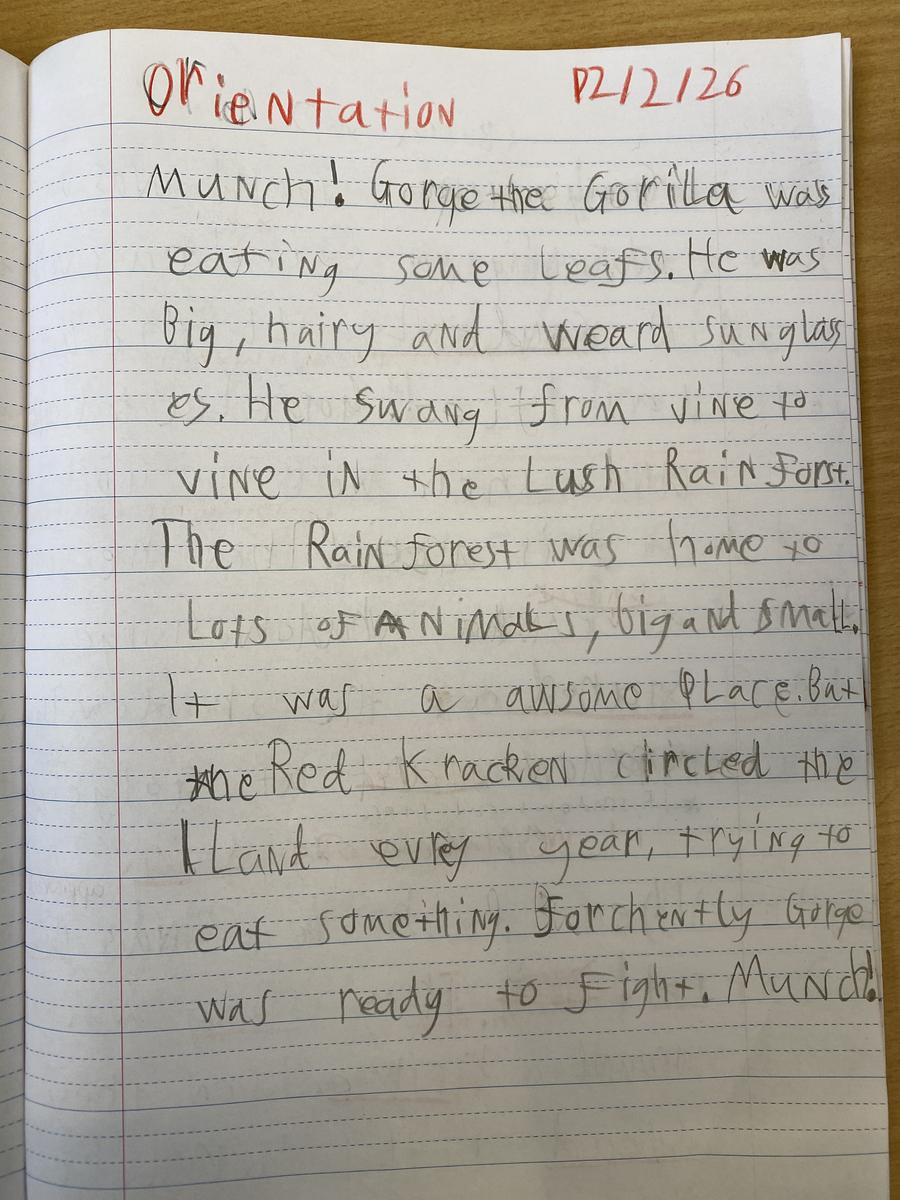 Orientation 12/2/26
Munch! Gorge the Gorilla was
eating some leafs. He was
Big, hairy and weard sunglass
es. He swang from vine to
vine in the Lush Rain Forst.
The Rain forest was home to
Lots of Animals, big and small.
It was a awsome Place. But
the Red Kracken circled the
ILand evrey year, trying to
eat something. Forchently Gorge
was ready to Fight. Munch!